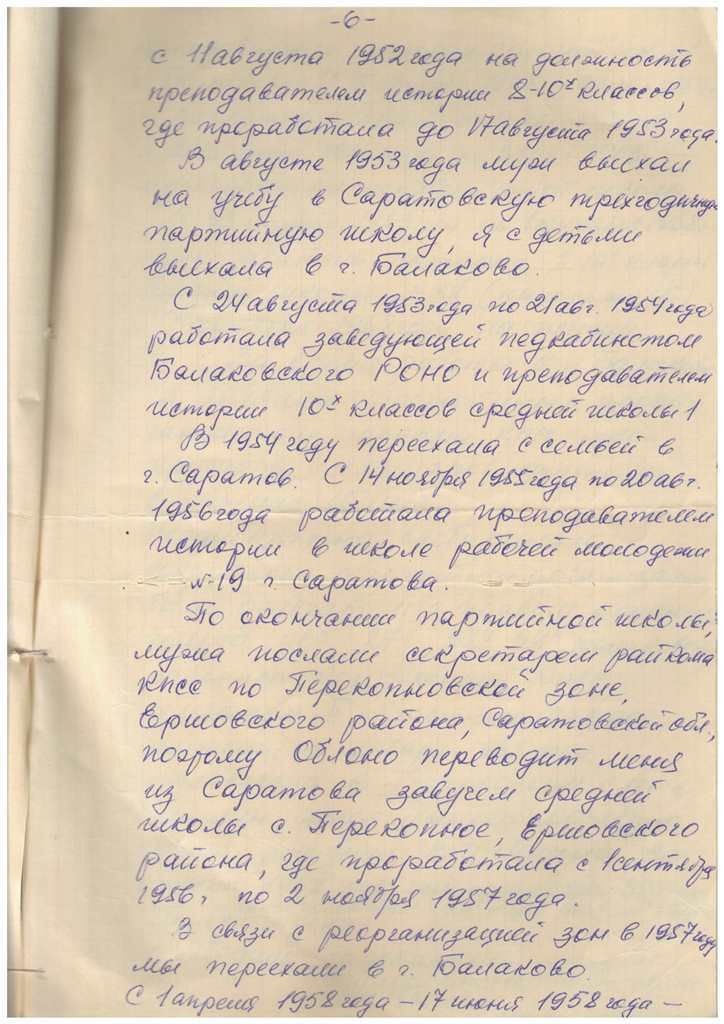 -6-
с 11 августа 1952 года на должность
преподавателем истории 8-10х классов,
где проработала до 17 августа 1953 года.
В августе 1953 года муж выехал
на учебу в Саратовскую трехгодичную
партийную школу, я с детьми
выехала в г. Балаково.
С 24 августа 1953 года по 21 авг. 1954 года
работала заведующей педкабинетом
Балаковского РОНО и преподавателем
истории 10х классов средней школы 1
В 1954 году переехала с семьей в
г. Саратов. С 14 ноября 1955 года по 20 авг.
1956 года работала преподавателем
истории в школе рабочей молодежи
№19 г. Саратова.
По окончании партийной школы,
мужа послали секретарем райкома
КПСС по Перекопновской зоне,
Ершовского района, Саратовской обл.,
поэтому Облоно переводит меня
из Саратова завучем средней
школы с. Перекопное, Ершовского
района, где проработала с 1 сентября
1956 г. по 2 ноября 1957 года.
В связи с реорганизацией зон в 1957 году
мы переехали в г. Балаково.
С 1 апреля 1958 года – 17 июня 1958 года –